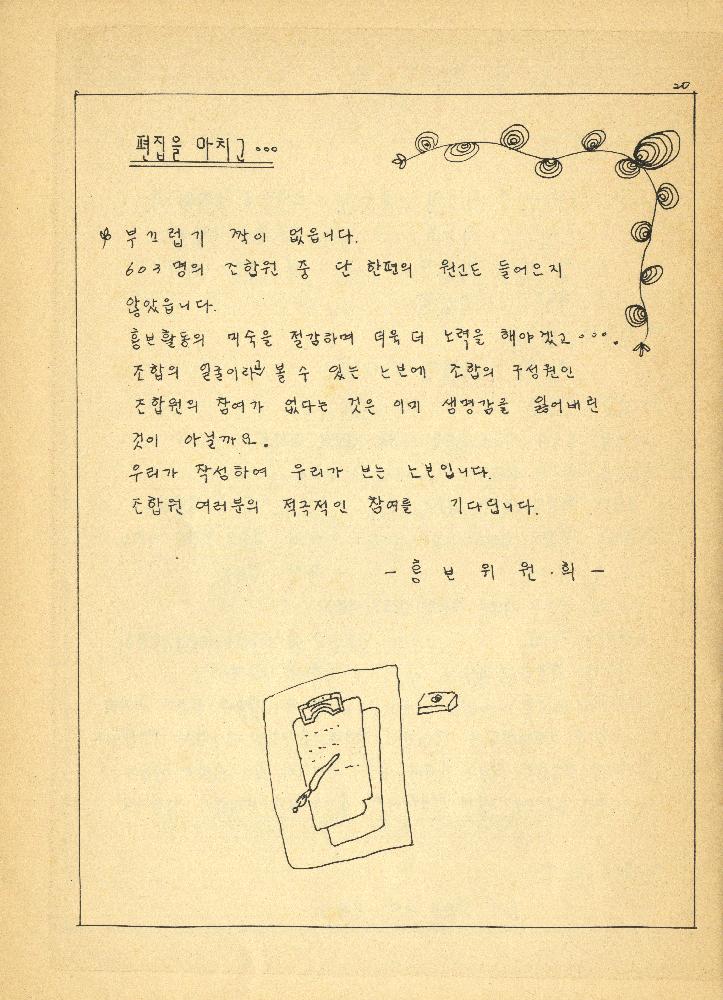 20
편집을 마치고...
부끄럽기 짝이 없읍니다.
603명의 조합원 중 단 한편의 원고도 들어오지
않았읍니다.
홍보활동의 미숙을 절감하며 더욱 더 노력을 해야겠고....
조합의 얼굴이라고 볼 수 있는 노보에 조합의 구성원인
조합원의 참여가 없다는 것은 이미 생명감을 잃어버린
것이 아닐까요.
우리가 작성하여 우리가 보는 노보입니다.
조합원 여러분의 적극적인 참여를 기다립니다.
- 홍보위원·회 -